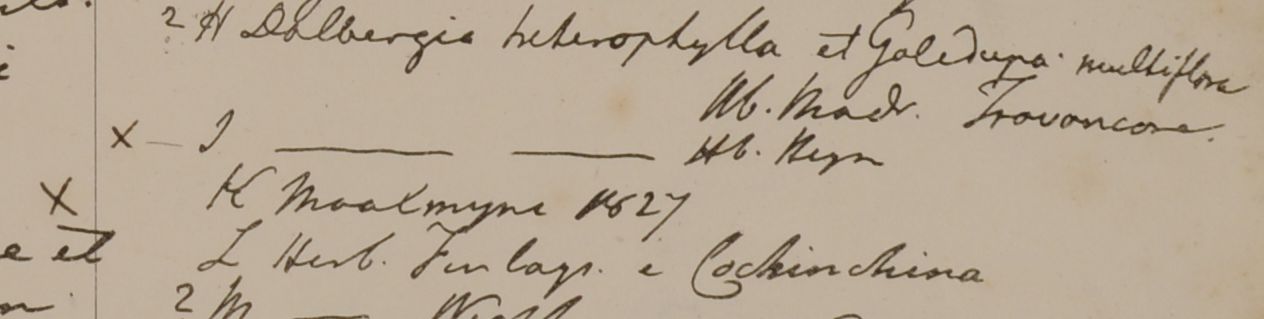 2 H Dalbergia heterophylla et Galedupa multiflora
Hb. Madr. Travancore.
X — I ——— ——— Hb. Heyn
X K Moalmyne 1827
e et L Herb. Finlays. e Cochinchina
2 M — Wight